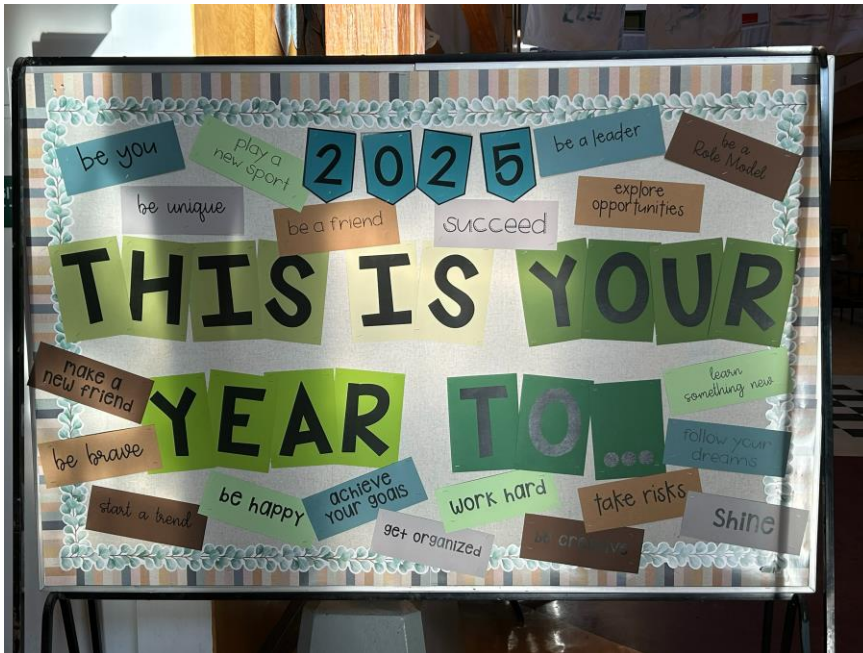 be you
play a
new sport
2025
be a leader
be a
Role Model
be unique
be a friend
succeed
explore
opportunities
THIS IS YOUR
YEAR TO...
make a
new friend
learn
something new
be brave
follow your
dreams
start a trend
be happy
achieve
your goals
get organized
work hard
be creative
take risks
Shine